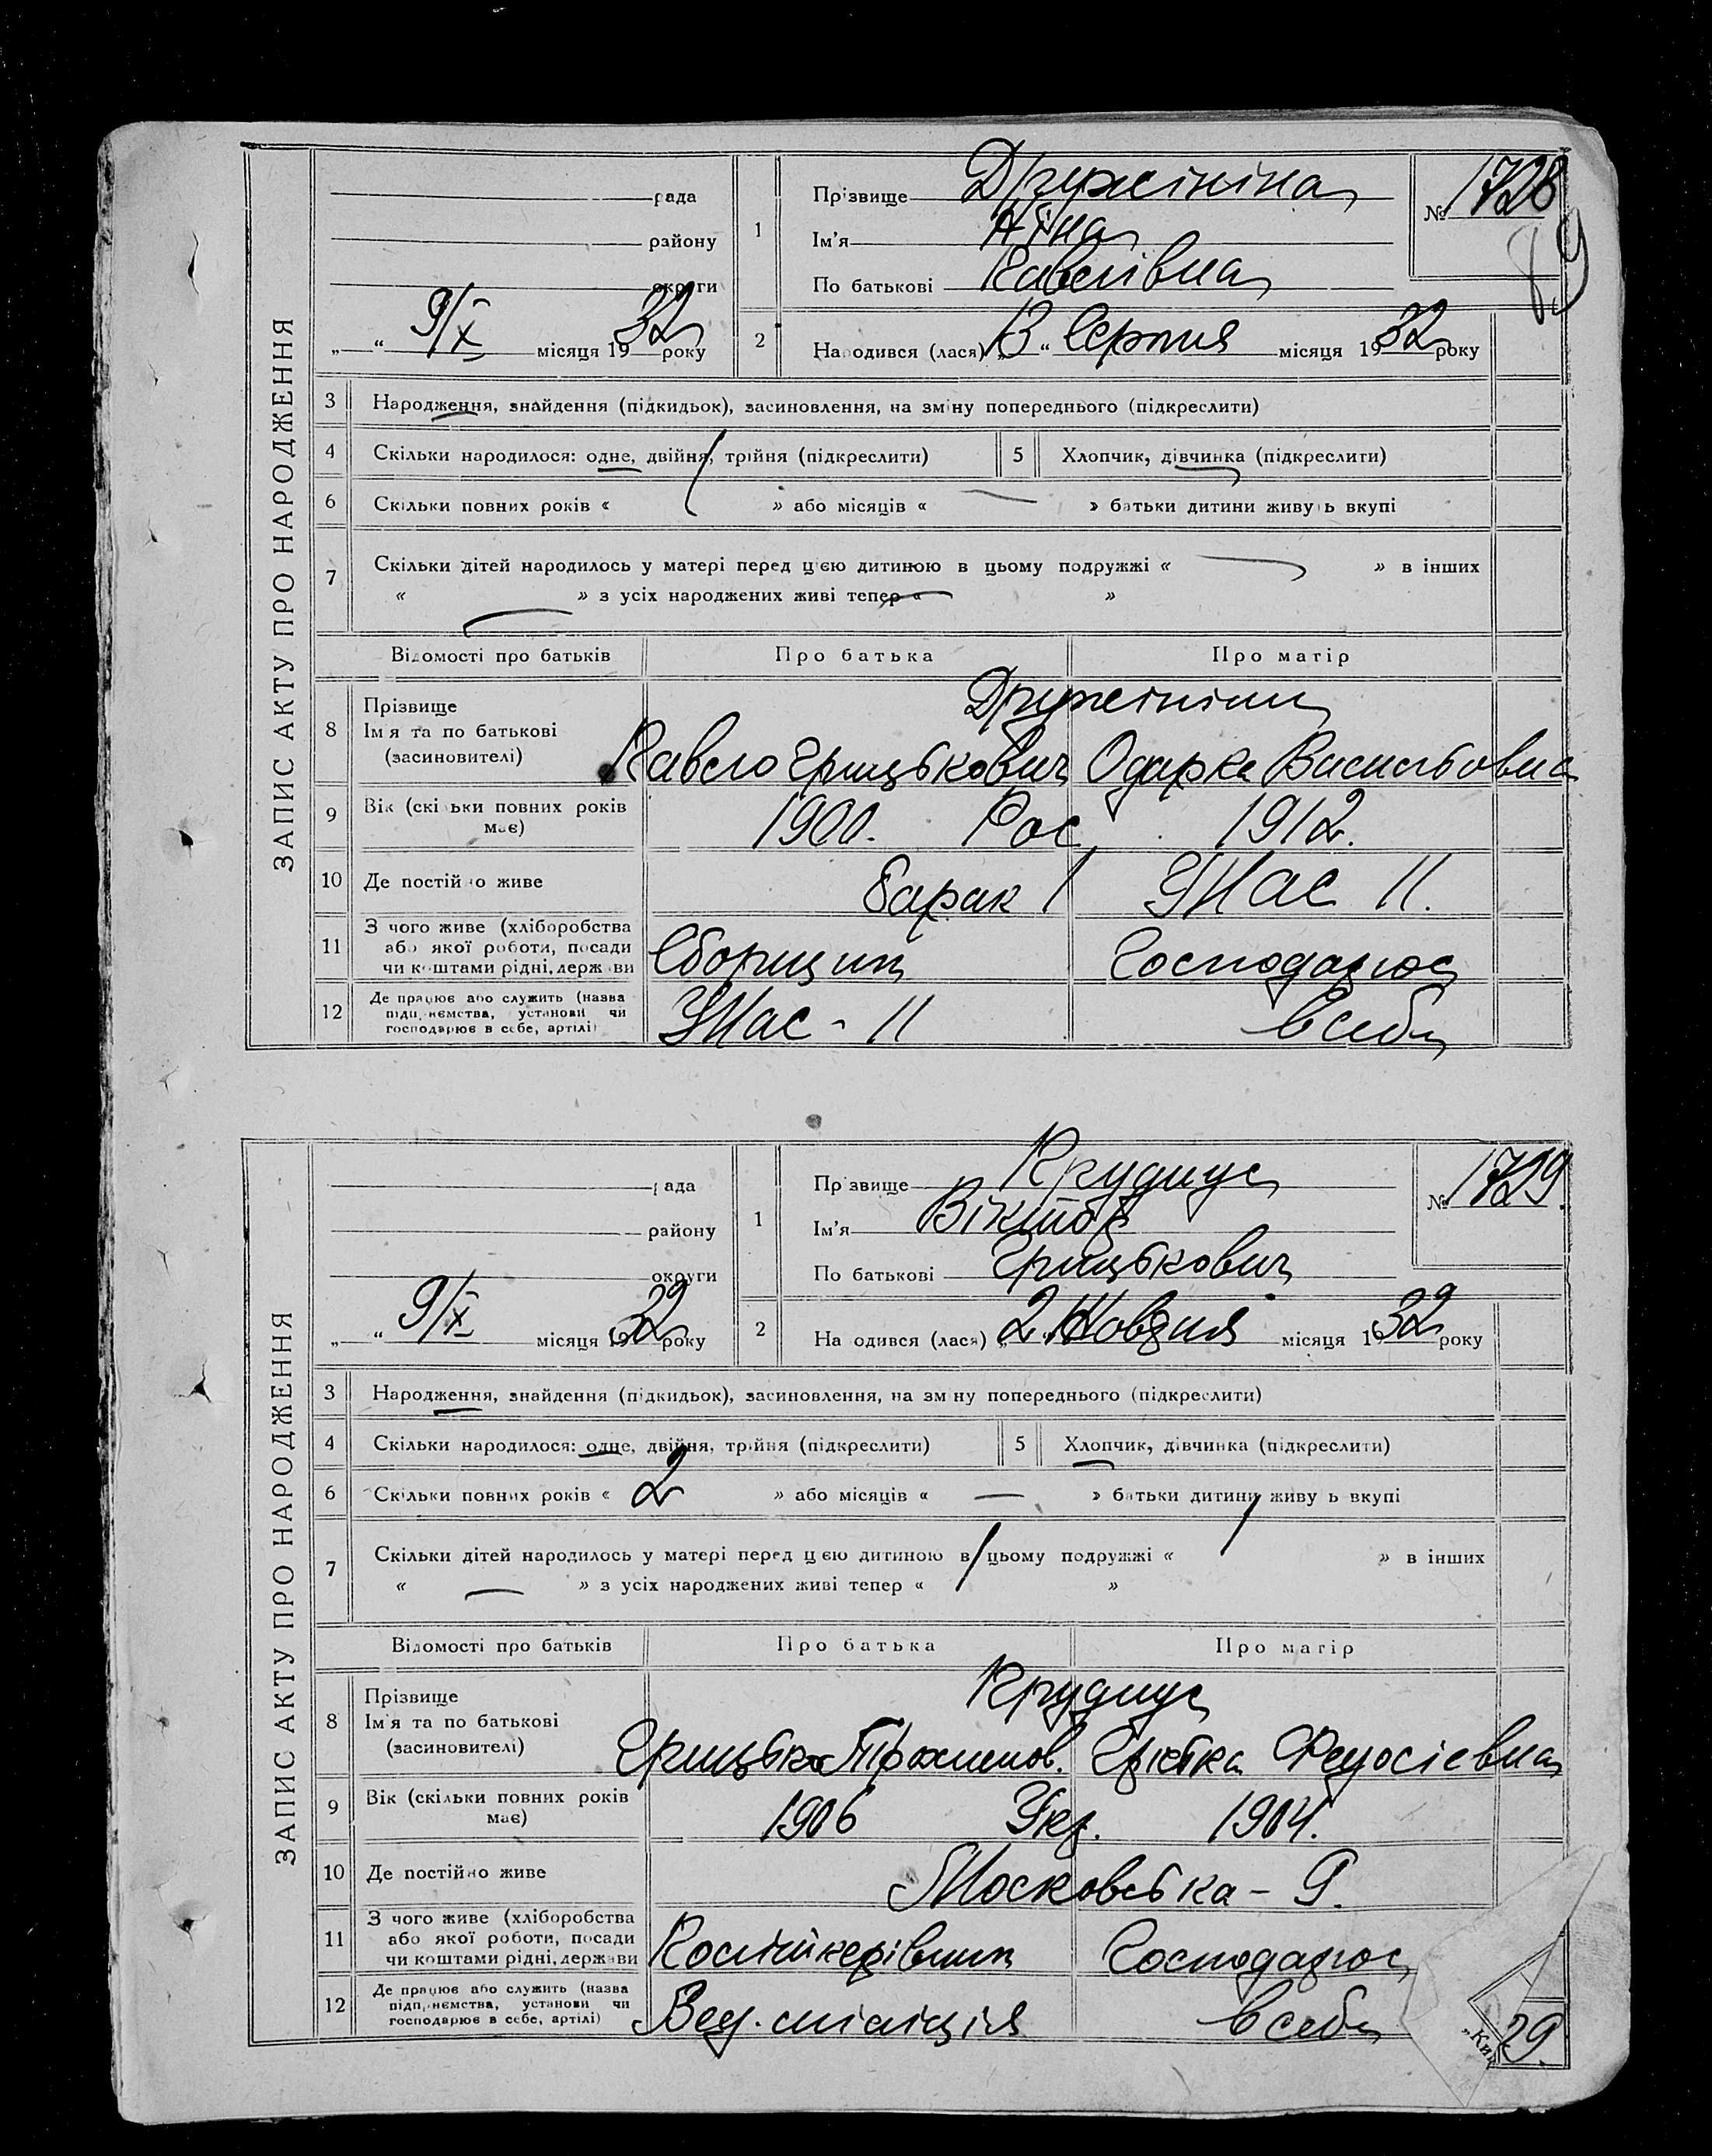 ЗАПИС АКТУ ПРО НАРОДЖЕННЯ
рада
району
округи
„ “ 9/X місяця 1932 року
1
Прізвище Дружініна
Ім’я
По батькові Павлівна
№ 1728
89
2
Народився (лася) „13“ Серпня місяця 1932 року
3 Народження, знайдення (підкидьок), засиновлення, на зміну попереднього (підкреслити)
4 Скільки народилося: одне, двійня, трійня (підкреслити)
5 Хлопчик, дівчинка (підкреслити)
6 Скільки повних років « » або місяців « — » батьки дитини живуть вкупі
7 Скільки дітей народилось у матері перед цією дитиною в цьому подружжі « — » в інших
« — » з усіх народжених живі тепер « — »
Відомості про батьків Про батька Про матір
8 Прізвище
Ім’я та по батькові
(засиновителі)
Дружініни
Павло Грицькович Одарка Васильовна
9 Вік (скільки повних років
має)
1900. Рос. 1912.
10 Де постійно живе
барак 1
11.
11 З чого живе (хліборобства
або якої роботи, посади
чи коштами рідні, держави
Сборщик Господарює
12 Де працює або служить (назва
підприємства, установи чи
господарює в себе, артілі)
11 в себе
ЗАПИС АКТУ ПРО НАРОДЖЕННЯ
рада
району
округи
„ “ 9/X місяця 1932 року
1
Прізвище Крудиус
Ім’я Віктор
По батькові Грицькович
№ 1729.
2
Народився (лася) „2 Жовтня місяця 1932 року
3 Народження, знайдення (підкидьок), засиновлення, на зміну попереднього (підкреслити)
4 Скільки народилося: одне, двійня, трійня (підкреслити)
5 Хлопчик, дівчинка (підкреслити)
6 Скільки повних років « 2 » або місяців « — » батьки дитини живуть вкупі
7 Скільки дітей народилось у матері перед цією дитиною в цьому подружжі « » в інших
« — » з усіх народжених живі тепер « »
Відомості про батьків Про батька Про матір
8 Прізвище
Ім’я та по батькові
(засиновителі)
Крудиус
Грицько Федосієвна
9 Вік (скільки повних років
має)
1906 Укр. 1904.
10 Де постійно живе
Московська – 9.
11 З чого живе (хліборобства
або якої роботи, посади
чи коштами рідні, держави
Політкерівник Господарює
12 Де працює або служить (назва
підприємства, установи чи
господарює в себе, артілі)
Вед. міліція в себе
„Киї
29.